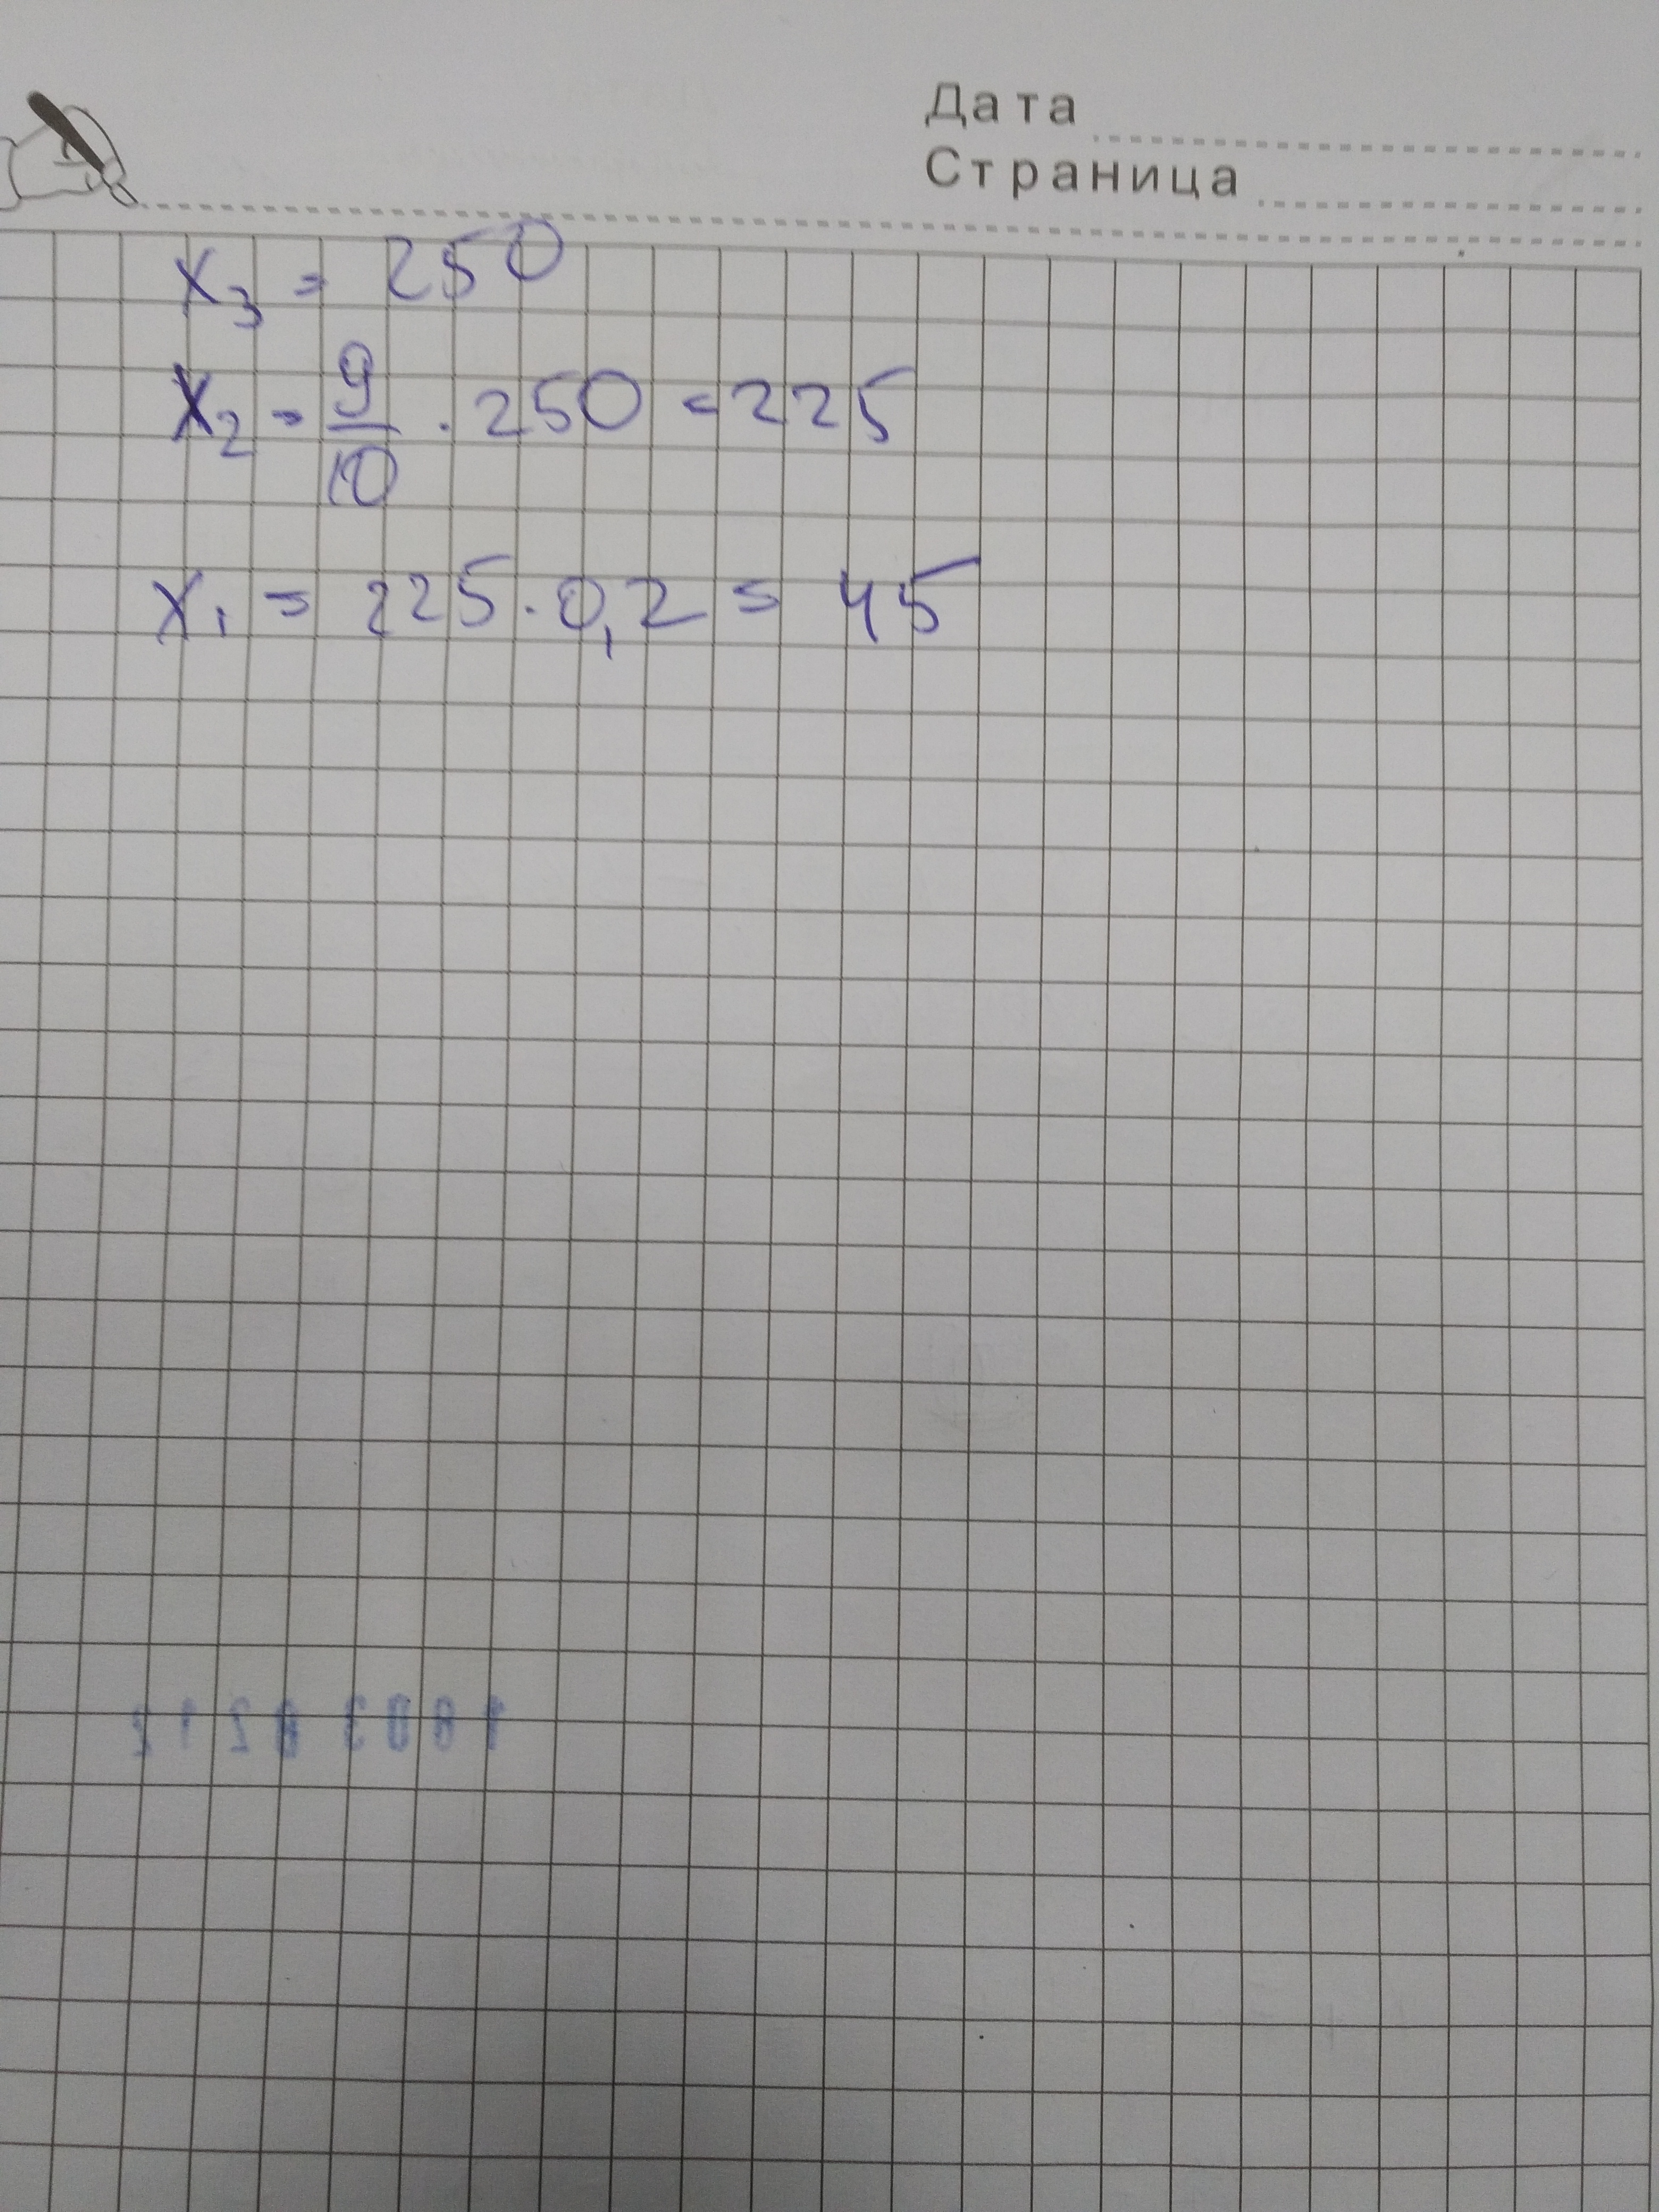 Дата
Страница
x₃ = 250
x₂ = 9/10 · 250 = 225
x₁ = 225 · 0,2 = 45